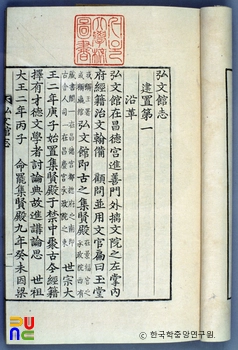 弘文館志
建置第一
沿革
弘文館在昌德宮進善門外摛文院之左掌內
府經籍治文翰備 顧問並用文官扁曰玉堂
弘文館即古之集賢殿 世宗大
王二年庚子始置集賢殿于禁中聚古今經籍
擇有才德文學者討論典故進講論思 世祖
大王二年丙子 命罷集賢殿九年癸未因梁
弘文館志
한국학중앙연구원